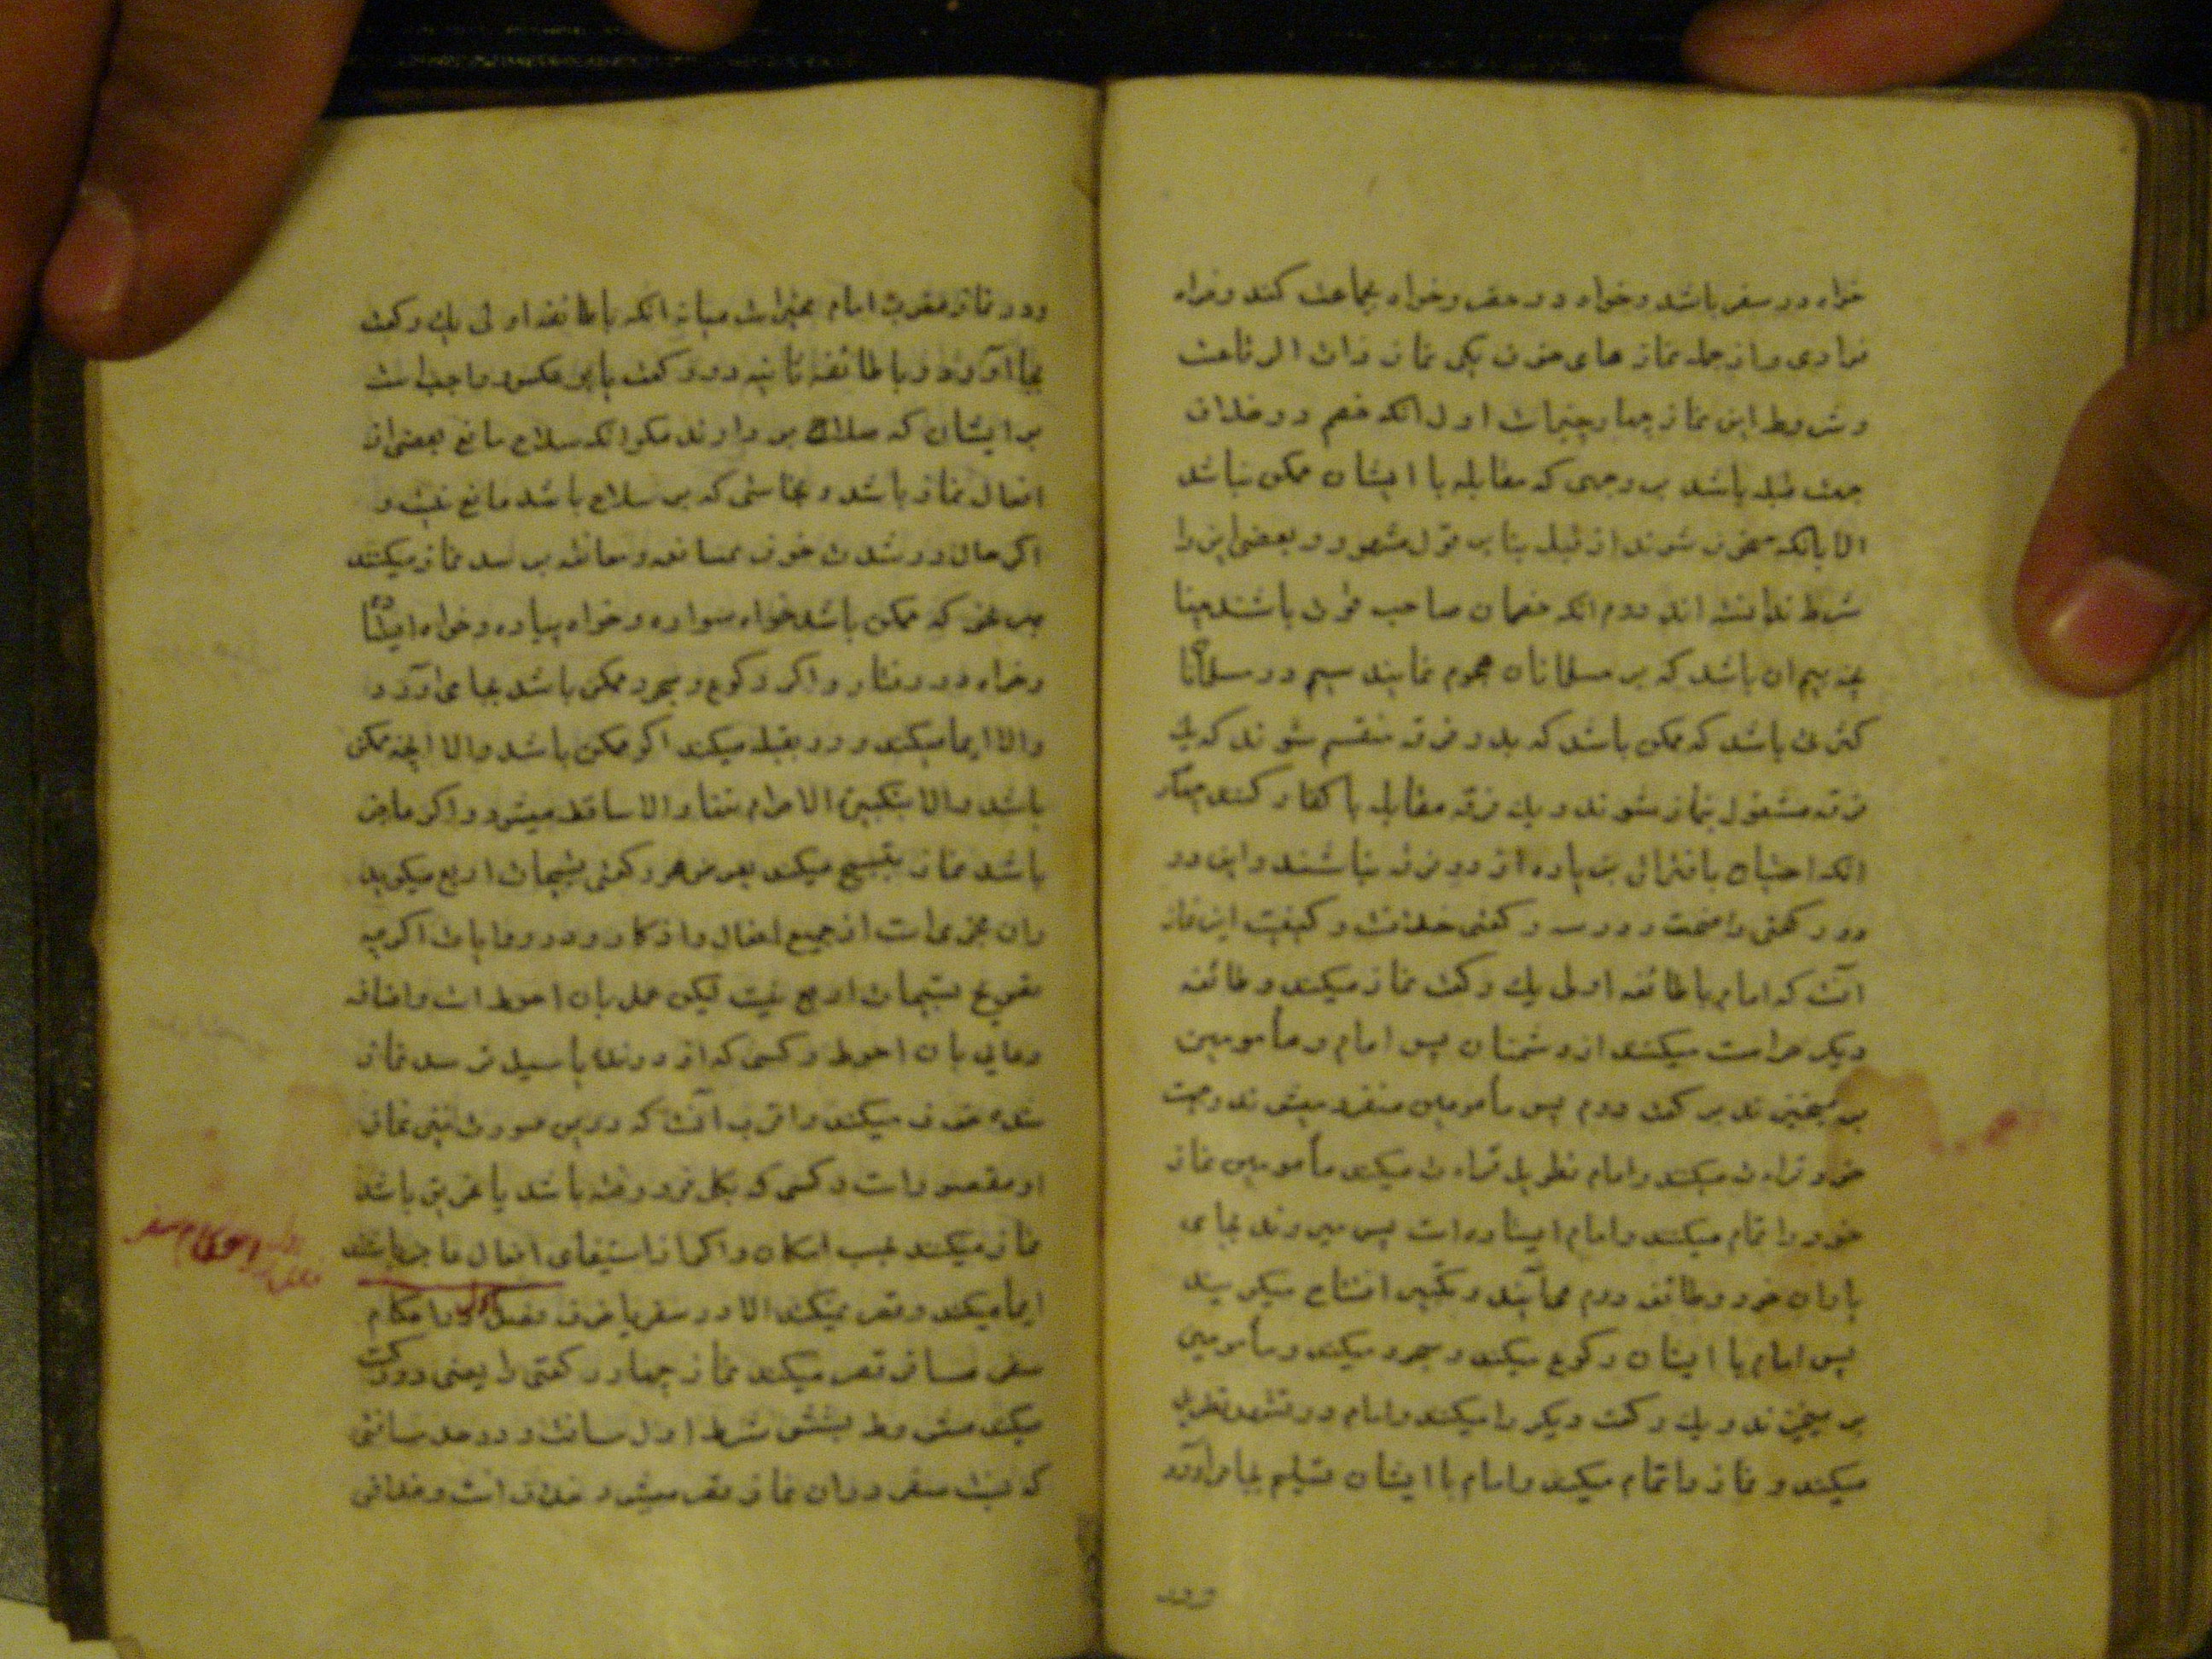 خواه در سفر باشد و خواه در حضر و خواه بجماعت کند و خواه
فرادی و از جمله نماز های خوف یکی نماز ذات الرقاعست
و شروط این نماز چهار چیزاست اول انکه خصم در خلاف
جهت قبله باشد بر وجهی که مقابله با ایشان ممکن نباشد
الا بانکه منحرف شوند از قبله بنابر قول مشهور و بعضی این را
شرط ندانسته اند دوم انکه خصمان صاحب قوت باشند
بیم ان باشد که بر مسلمانان هجوم نمایند سیم در مسلمانان
کثرتی باشد که ممکن باشد که بدو فرقه منقسم شوند که یک
فرقه مشغول بنماز شوند و یک فرقه مقابله با کفار کنند چهارم
انکه احتیاج بافتراق بزیاده از دو فرقه نباشند و این در
دو رکعتی واضحست و در سه رکعتی خلافست و کیفیت این نماز
آنست که امام با طائفه اولی یک رکعت نماز میکند و طائفه
دیگر حراست میکنند از دشمنان پس امام و مأمومین
بر میخیزند برکعت دوم پس مأمومین منفرد میشوند و جهت
خود قراءت میکنند و امام تطویل قراءت میکند مأمومین نماز
خود را تمام میکنند و امام ایستاده است پس میروند بجای
یاران خود و طائفه دوم میآیند و تکبیر افتتاح میکویند
پس امام با ایشان رکوع میکند و سجود میکند و مأمومین
بر میخیزند و یک رکعت دیکر را میکنند و امام در تشهد تطویل
میکند و نماز را تمام میکنند و امام با ایشان تسلیم بجا میآورد
ودر
ودر نماز مغرب امام مخیراست میانه انکه با طائفه اولی یک رکعت
بجا آورد و با طائفه ثانیه دو رکعت یا بر عکس و واجب است
بر ایشان که سلاح بر دارند مکر انکه سلاح مانع بعضی از
افعال نماز باشد و نجاستی که بر سلاح باشد مانع نیست و
اکر حال در شدت خوف بمسایفه و معانقه برسد نماز میکنند
بهر نحو که ممکن باشد خواه سواره و خواه پیاده و خواه ایستاده
و خواه در رفتار و اکر رکوع و سجود ممکن باشد بجا می آورد
والا ایما میکند و رو بقبله میکند اکر ممکن باشد والا انچه ممکن
باشد والا بتکبیرة الاحرام تنها والا ساقط میشود و اکر عاجز
باشد نماز بتسبیح میکند بعوض هر رکعتی تسبیحات اربع میکوید
وان مجزی است از جمیع افعال و اذکار و در روایات اکرچه
تصریح بتسبیحات اربع نیست لیکن عمل بان احوط است و اضافه
دعایی بان احوط و کسی که از درنده یا سیل ترسد نماز
شدة خوف میکند و اقرب آنست که درین صورت نیز نماز
او مقصور است و کسی که بکل فرو رفته باشد یا غریق باشد
نماز میکند بحسب امکان و اکر از استیفای افعال عاجز باشد
ایما میکند و قصر نمیکند الا در سفر یا خوف فصل اول در احکام
سفر مسافر قصر میکند نماز چهار رکعتی را یعنی دو رکعت
میکند مشروط بشش شرط اول مسافت و در حد مسافتی
که بنیت سفر دران نماز قصر میشود خلاف است و خلافی
احکام سفر